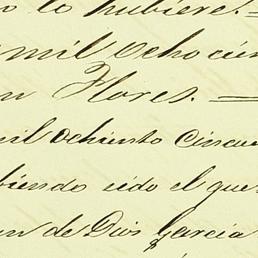 lo hubiere.
mil ocho cien
Flores.
mil ochiento cincue
biendo sido el que
de Dios Garcia